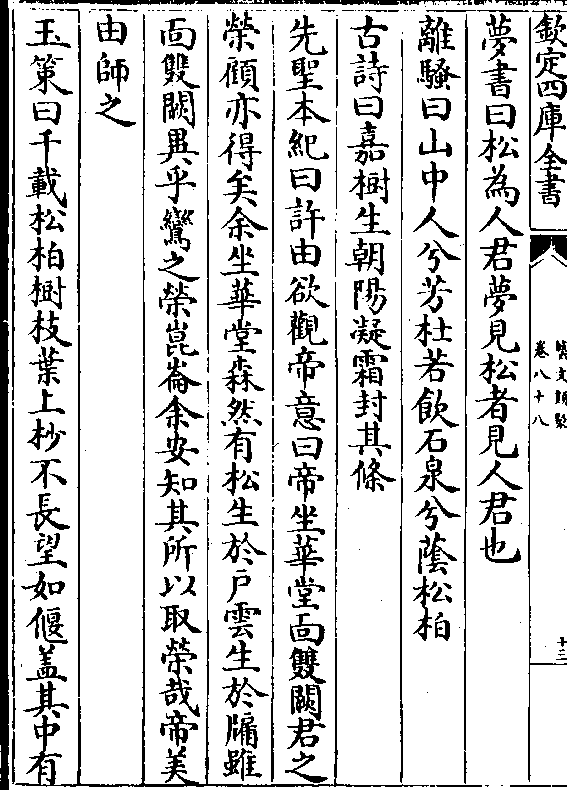 欽定四庫全書
藝文類聚
卷八十八
十三
夢書曰松為人君夢見松者見人君也
離騷曰山中人兮芳杜若飲石泉兮蔭松柏
古詩曰嘉樹生朝陽凝霜封其條
先聖本紀曰許由欲觀帝意曰帝坐華堂面雙闕君之
榮願亦得矣余坐華堂森然有松生於戶雲生於牖雖
面雙闕異乎鸞之榮崑崙余安知其所以取榮哉帝美
由師之
玉策曰千載松柏樹枝葉上杪不長望如偃盖其中有